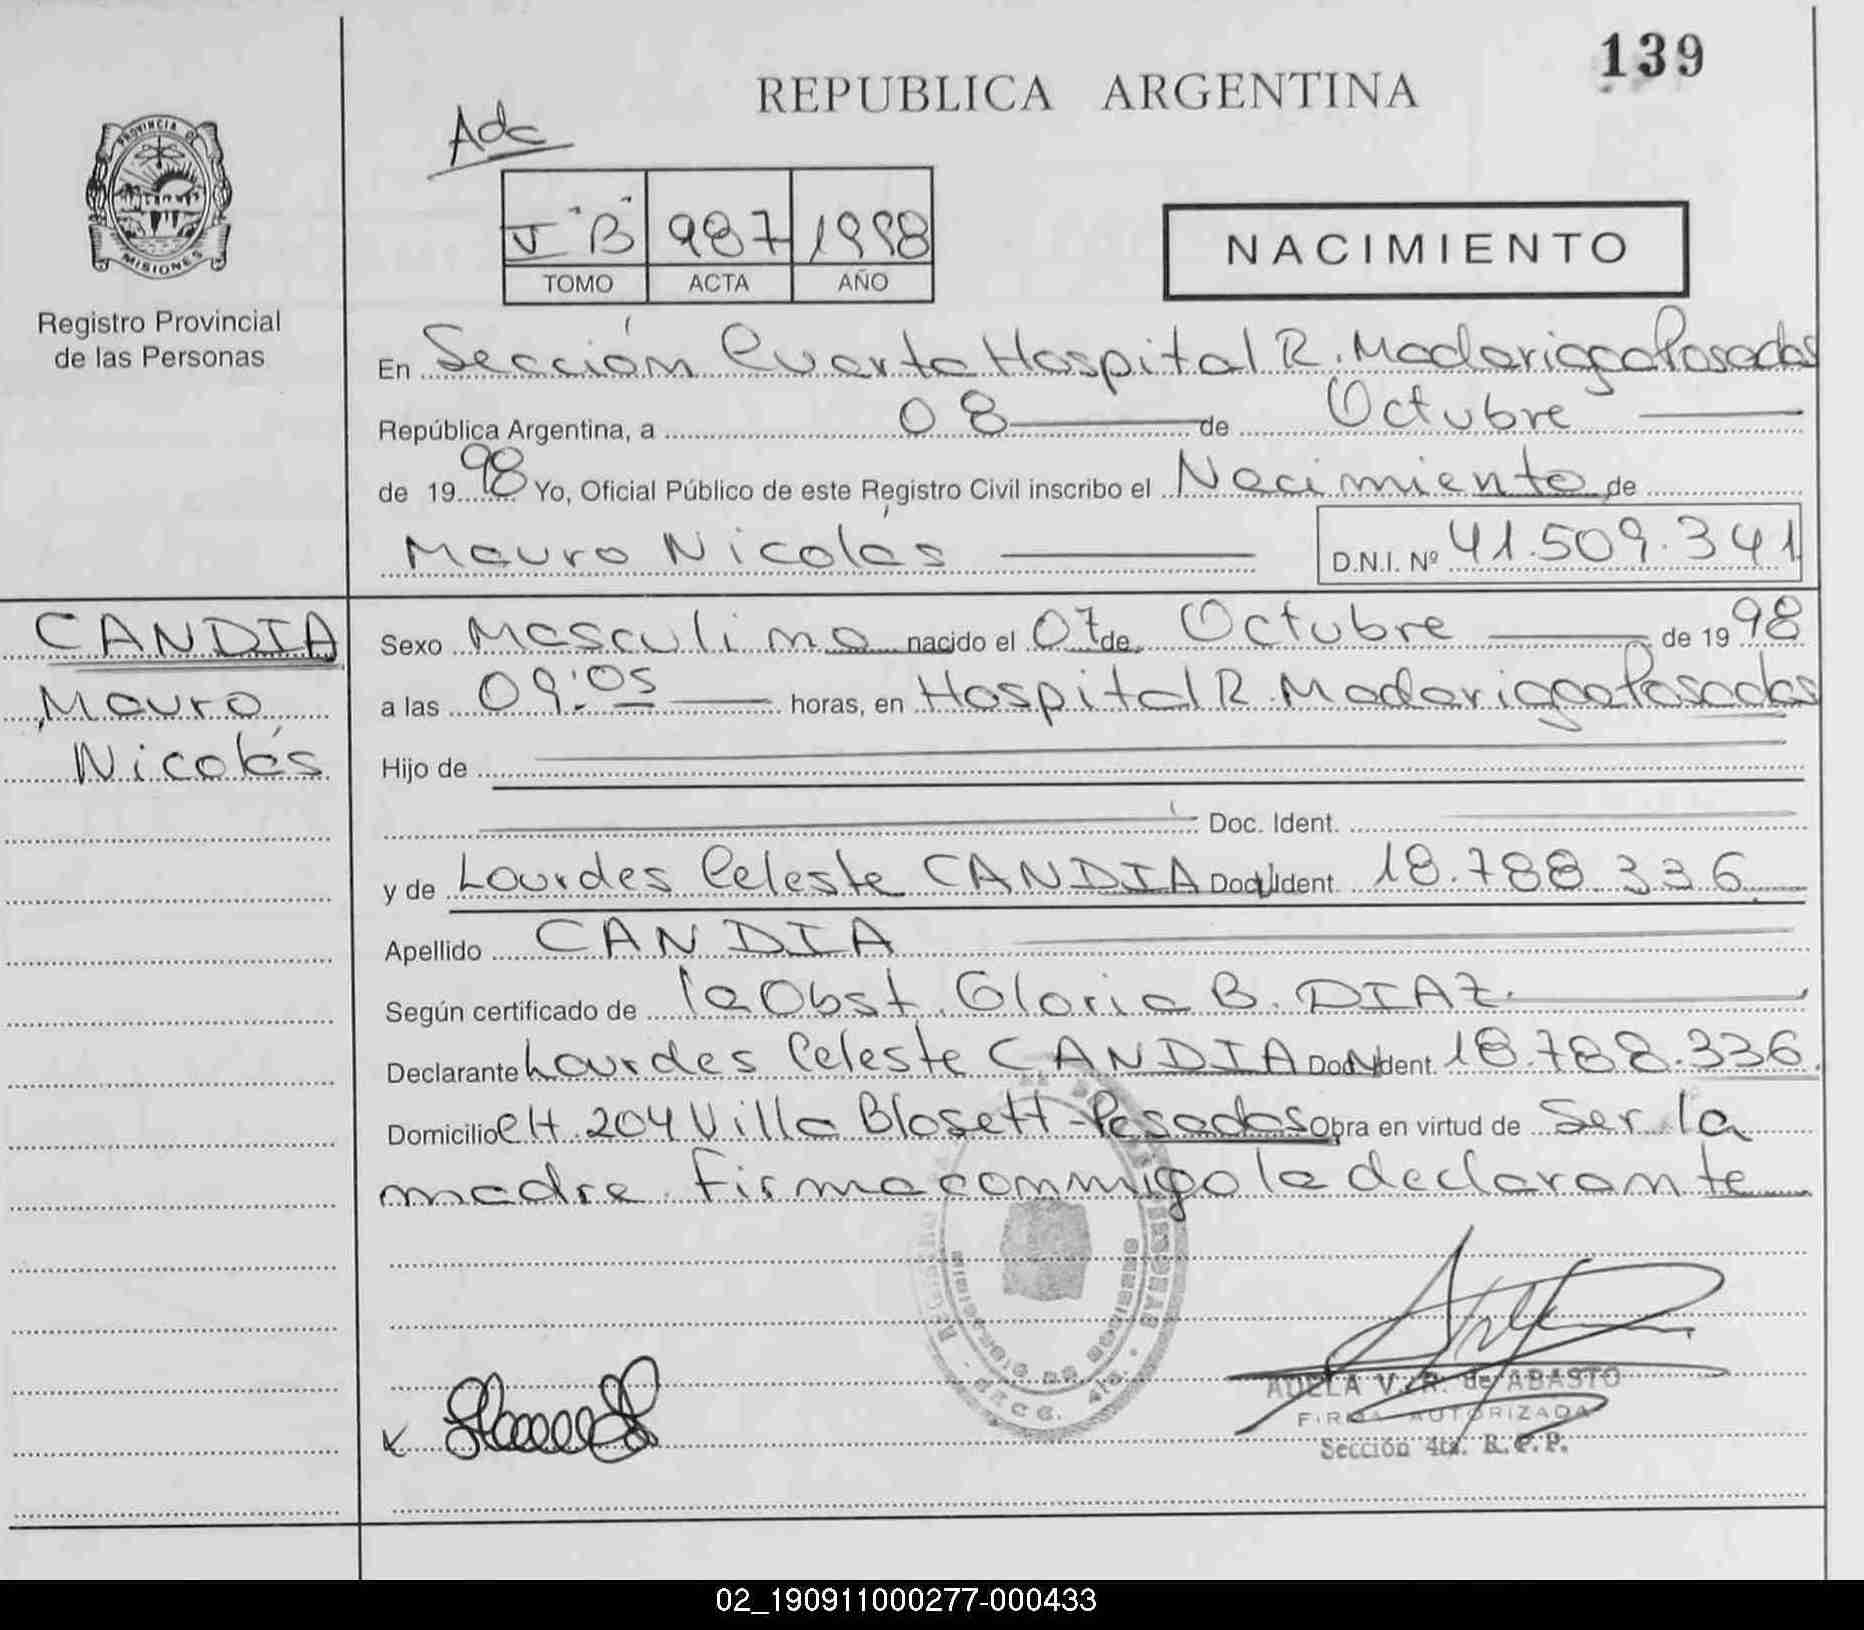 139
REPUBLICA ARGENTINA
Adc
PROVINCIA DE
MISIONES
Registro Provincial
de las Personas
I "B" 987 1998
TOMO ACTA AÑO
NACIMIENTO
En Sección Cuarta Hospital R. Madariaga Posadas
República Argentina, a 08 de Octubre
de 1998 Yo, Oficial Público de este Registro Civil inscribo el Nacimiento de
Mauro Nicolás D.N.I. Nº 41.509.341
CANDIA
Mauro
Nicolás
Sexo Masculino nacido el 07 de Octubre de 1998
a las 09:05 horas, en Hospital R. Madariaga Posadas
Hijo de
Doc. Ident.
y de Lourdes Celeste CANDIA Doc. Ident. 18.788.336
Apellido CANDIA
Según certificado de la Obst. Gloria B. DIAZ.
Declarante Lourdes Celeste CANDIA Doc. Ident. 18.788.336.
Domicilio CH. 204 Villa Blosett - Posadas Obra en virtud de Ser la
madre. Firma conmigo la declarante
MINISTERIO DE GOBIERNO
SECC. 4ta.
ADELA V. R. de ABASTO
FIRMA AUTORIZADA
Sección 4ta. R.P.P.
02_190911000277-000433